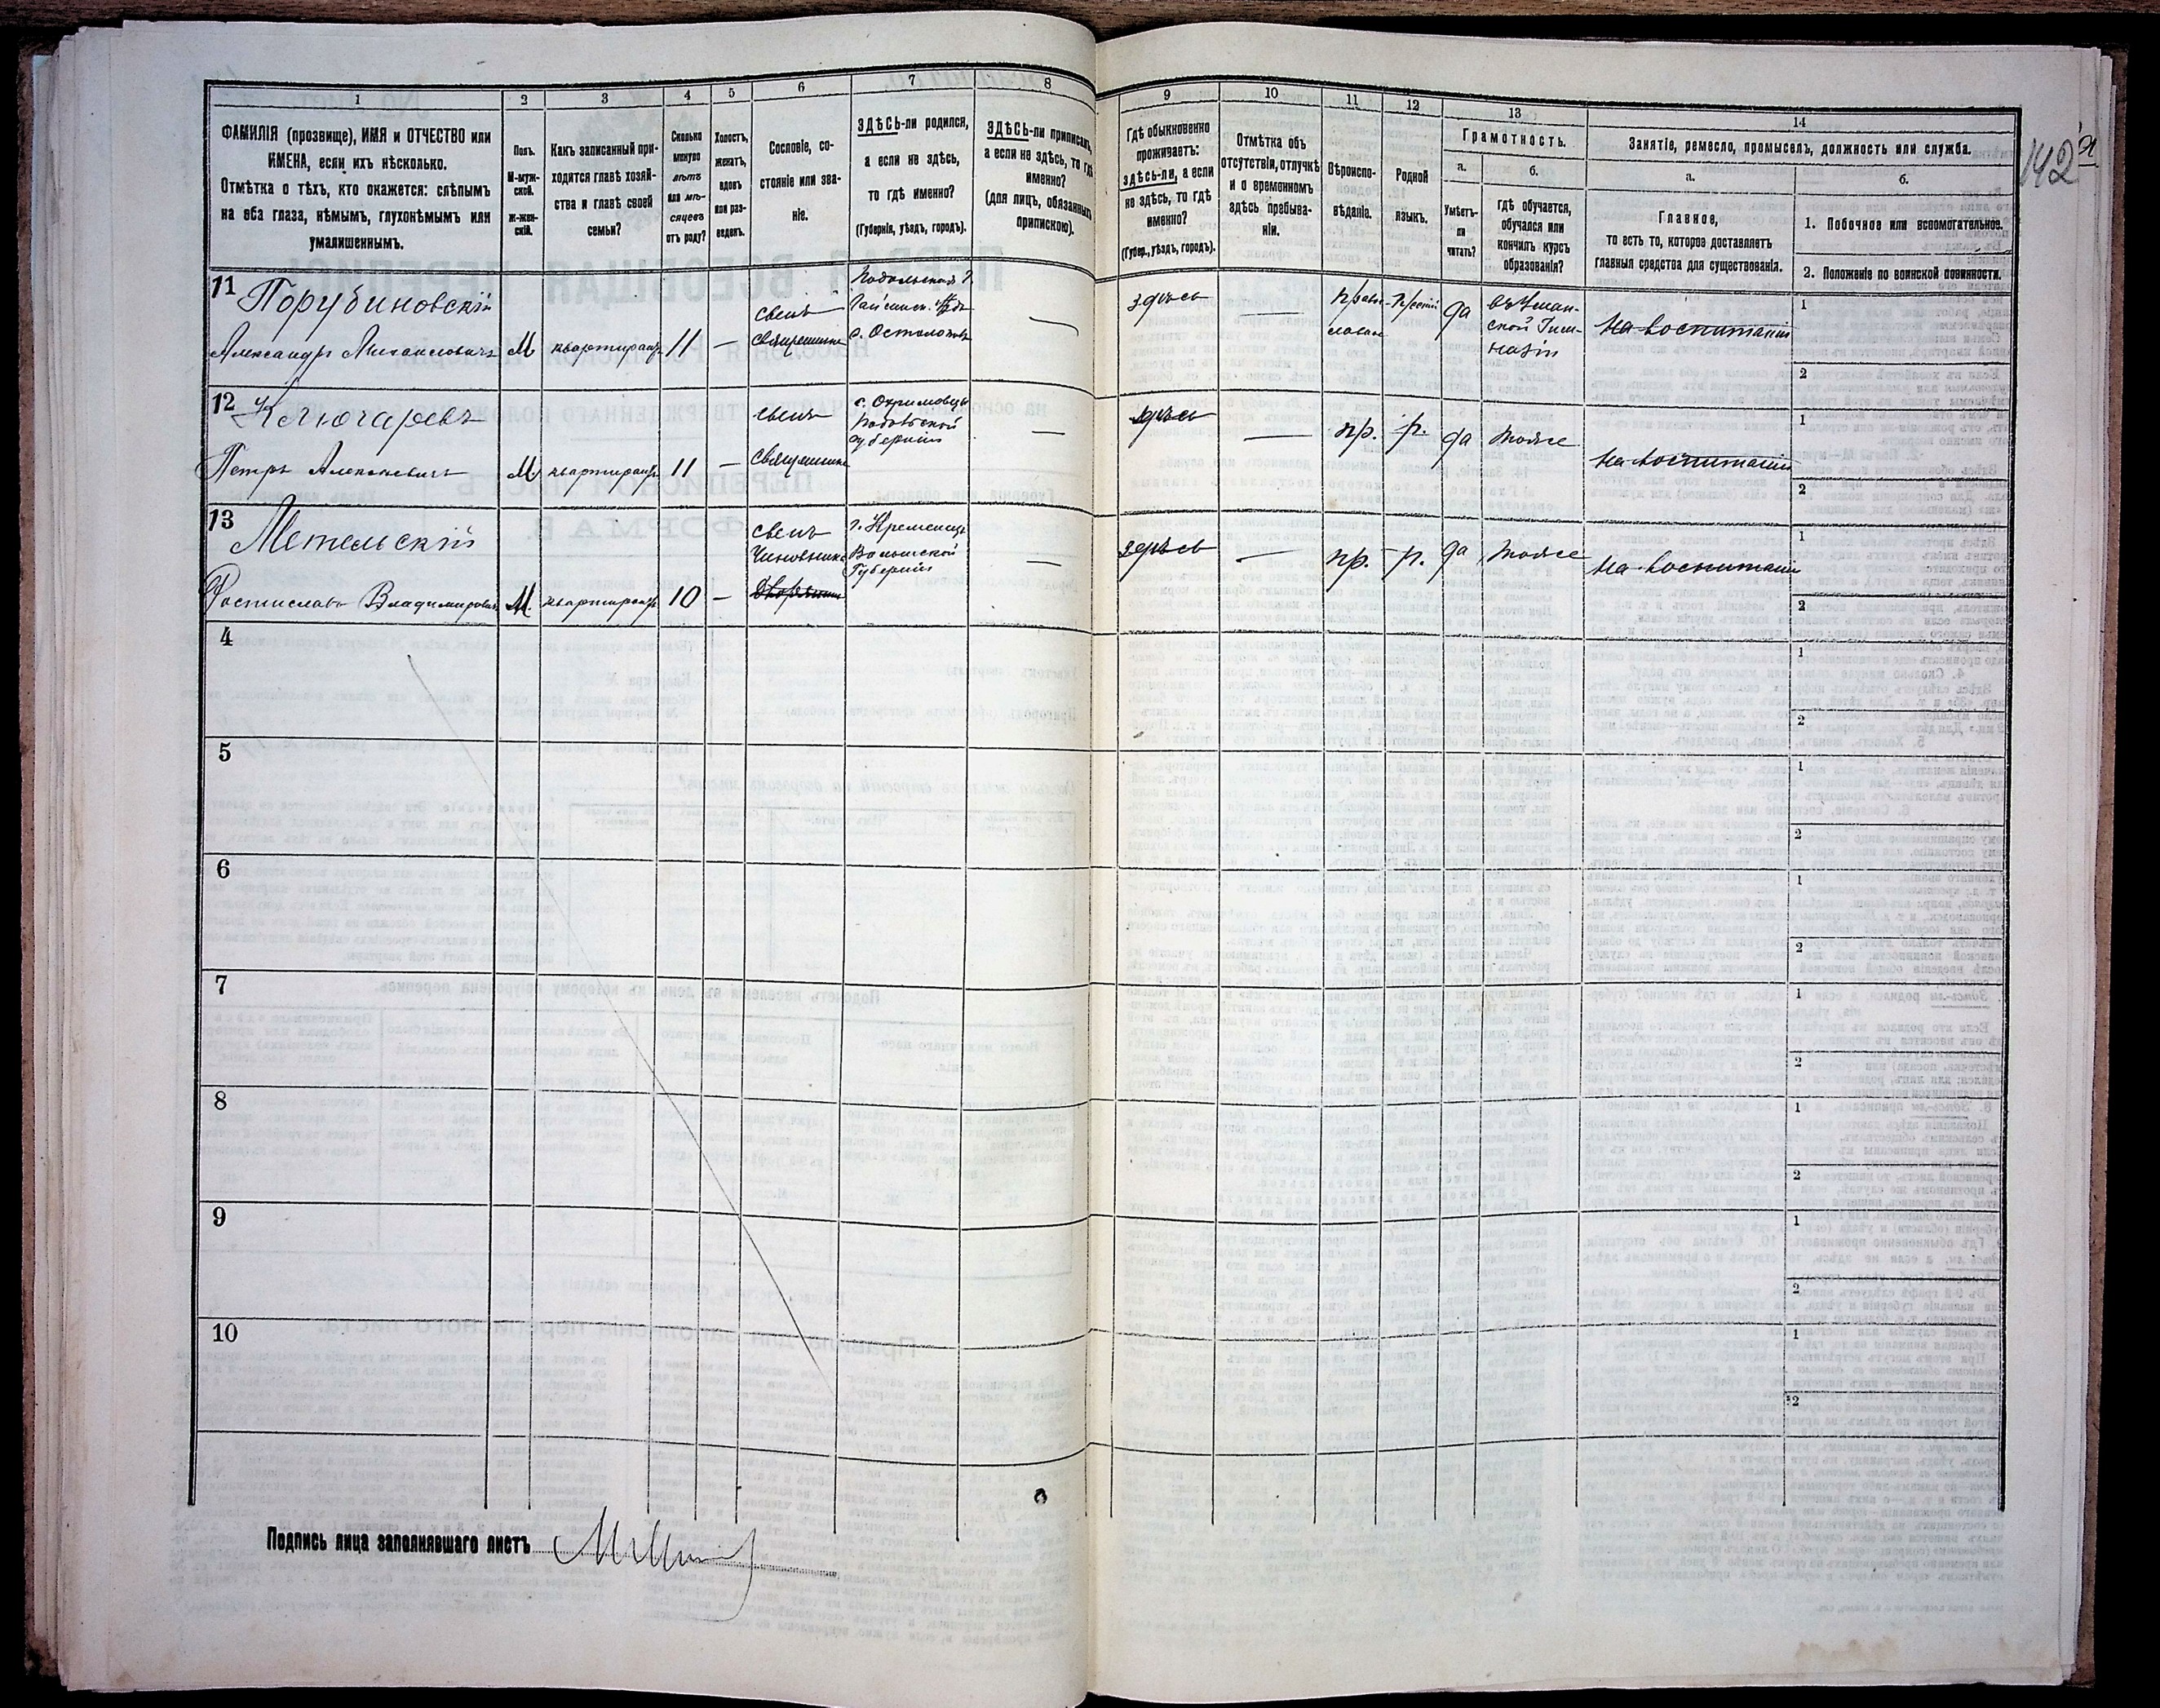 142 а
1
2
3
4
5
6
7
8
9
10
11
12
13
14
ФАМИЛІЯ (прозвище), ИМЯ и ОТЧЕСТВО или
ИМЕНА, если ихъ нѣсколько.
Отмѣтка о тѣхъ, кто окажется: слѣпымъ
на оба глаза, нѣмымъ, глухонѣмымъ или
умалишеннымъ.
Полъ.
М-муж-
ской.
Ж-жен-
скій.
Какъ записанный при-
ходится главѣ хозяй-
ства и главѣ своей
семьи?
Сколько
минуло
лѣтъ
или мѣ-
сяцевъ
отъ роду?
Холостъ,
женатъ,
вдовъ
или раз-
веденъ.
Сословіе, со-
стояніе или зва-
ніе.
ЗДѢСЬ-ли родился,
а если не здѣсь,
то гдѣ именно?
(Губернія, уѣздъ, городъ).
ЗДѢСЬ-ли приписанъ,
а если не здѣсь, то гдѣ
именно?
(для лицъ, обязанныхъ
припискою).
Гдѣ обыкновенно
проживаетъ:
здѣсь-ли, а если
не здѣсь, то гдѣ
именно?
(Губер., уѣздъ, городъ).
Отмѣтка объ
отсутствіи, отлучкѣ
и о временномъ
здѣсь пребыва-
ніи.
Вѣроиспо-
вѣданіе.
Родной
языкъ.
Грамотность.
а.
Умѣетъ-
ли
читать?
б.
Гдѣ обучается,
обучался или
кончилъ курсъ
образованія?
Занятіе, ремесло, промыселъ, должность или служба.
а.
Главное,
то есть то, которое доставляетъ
главныя средства для существованія.
б.
1. Побочное или вспомогательное.
2. Положеніе по воинской повинности.
11 Порубиновскій
Александръ Михаиловичъ М квартирантъ 11 — сынъ священника
Подольская г.
с.
— здѣсь — право-
славн. Русскій да
ской Гим-
назіи
на воспитаніи
1
2
12 Ключаревъ
Петръ Алексѣевичъ М. квартирантъ 11 — сынъ священника
с. Охримовцы
Подольской
губерніи
— здѣсь — пр. р. да тоже на воспитаніи
1
2
13 Метельскій
Ростиславъ Владимировичъ М. квартирантъ 10 — сынъ
Чиновника
г. Кременецъ
Волынской
Губерніи
— здѣсь — пр. р. да тоже на воспитаніи
1
2
4
1
2
5
1
2
6
1
2
7
1
2
8
1
2
9
1
2
10
1
2
Подпись лица заполнявшаго листъ